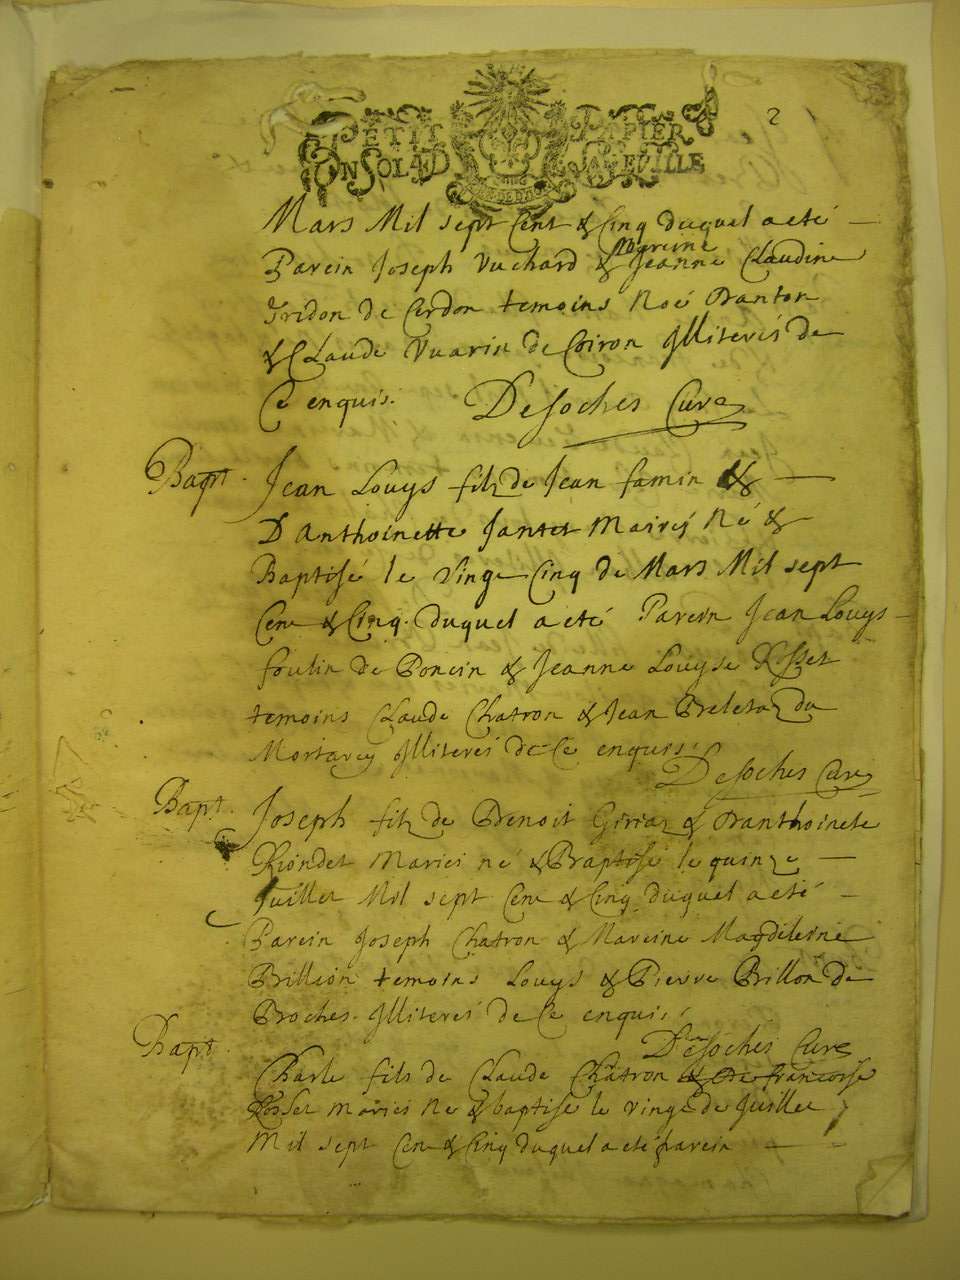 2
PETIT PAPIER
UN SOL LED LA FEVILLE
Mars Mil sept Cent & Cinq duquel a eté
Parein Joseph Vuchard & Mareine Jeanne Claudine
Gridon de Cerdon temoins Noé Danton
& Claude Vuarin de Coiron Illiterés de
Ce enquis. Desoches Curé
Bapt. Jean Louys filz de Jean famin &
D'Anthoinette Jantet Mariés Né &
Baptisé le vingt Cinq de Mars Mil sept
Cent & Cinq. duquel a eté Parein Jean Louys
foulin de Poncin & Jeanne Louyse Rosset
temoins Claude Chatron & Jean Beletaz du
Mortarey Illiterés de Ce enquis.
Desoches Curé
Bapt. Joseph filz de Benoit Girraz & Danthoinete
Riondet Mariés né & Baptisé le quinze
Juillet Mil sept Cent & Cinq duquel a eté
Parein Joseph Chatron & Mareine Magdeleine
Brillion temoins Louys & Pierre Brillon de
Broches. Illiterés de Ce enquis.
Desoches Curé
Bapt. Charle fils de Claude Chatron & de francoise
Rosset mariés Né & baptisé le vingt de Juillet
Mil sept Cent & Cinq duquel a eté parein